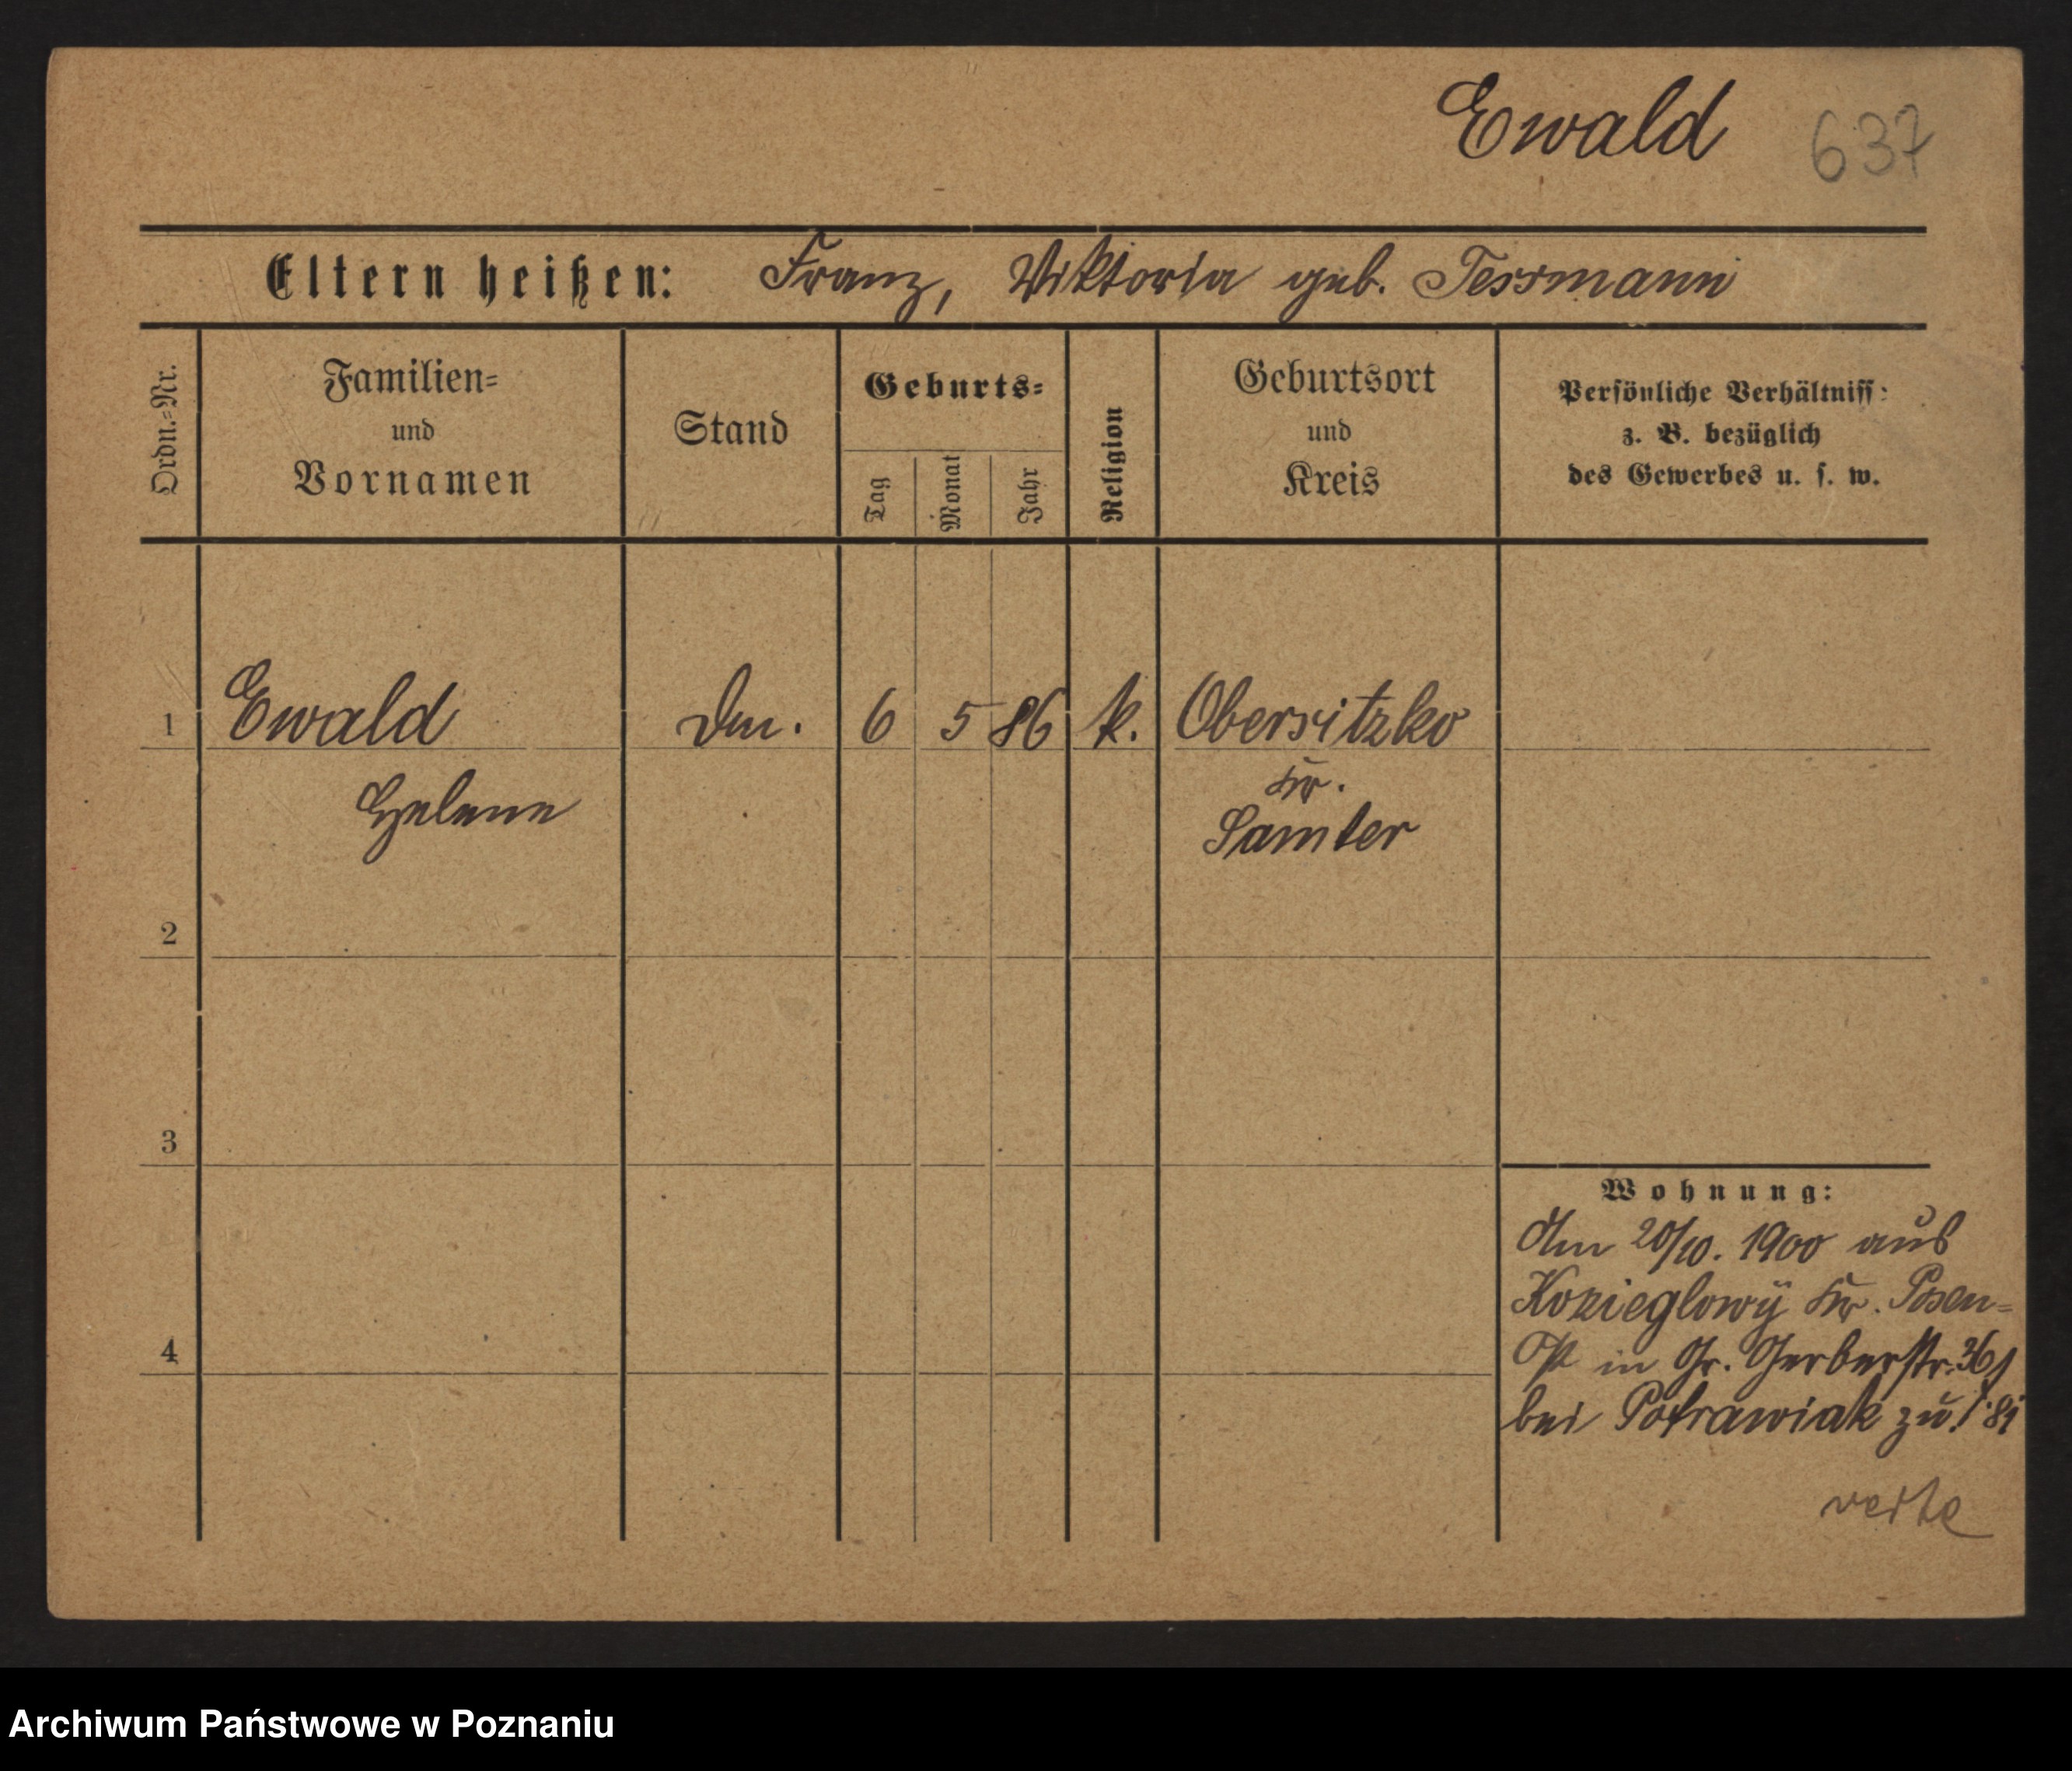 Ewald 637
Eltern heißen: Franz, Viktoria geb. Tessmann
Ordn.=Nr.
Familien=
und
Vornamen
Stand
Geburts=
Tag
Monat
Jahr
Religion
Geburtsort
und
Kreis
Persönliche Verhältniss:
z. B. bezüglich
des Gewerbes u. s. w.
1 Ewald Dm. 6 5 86 k. Obersitzko
Helene Kr.
Samter
2
3
4
Wohnung:
Am 20/10. 1900 aus
Kozieglowÿ Kr. Posen=
Ost in Gr. Gerberstr. 36
bei Potrawiak zu!
verte
Archiwum Państwowe w Poznaniu